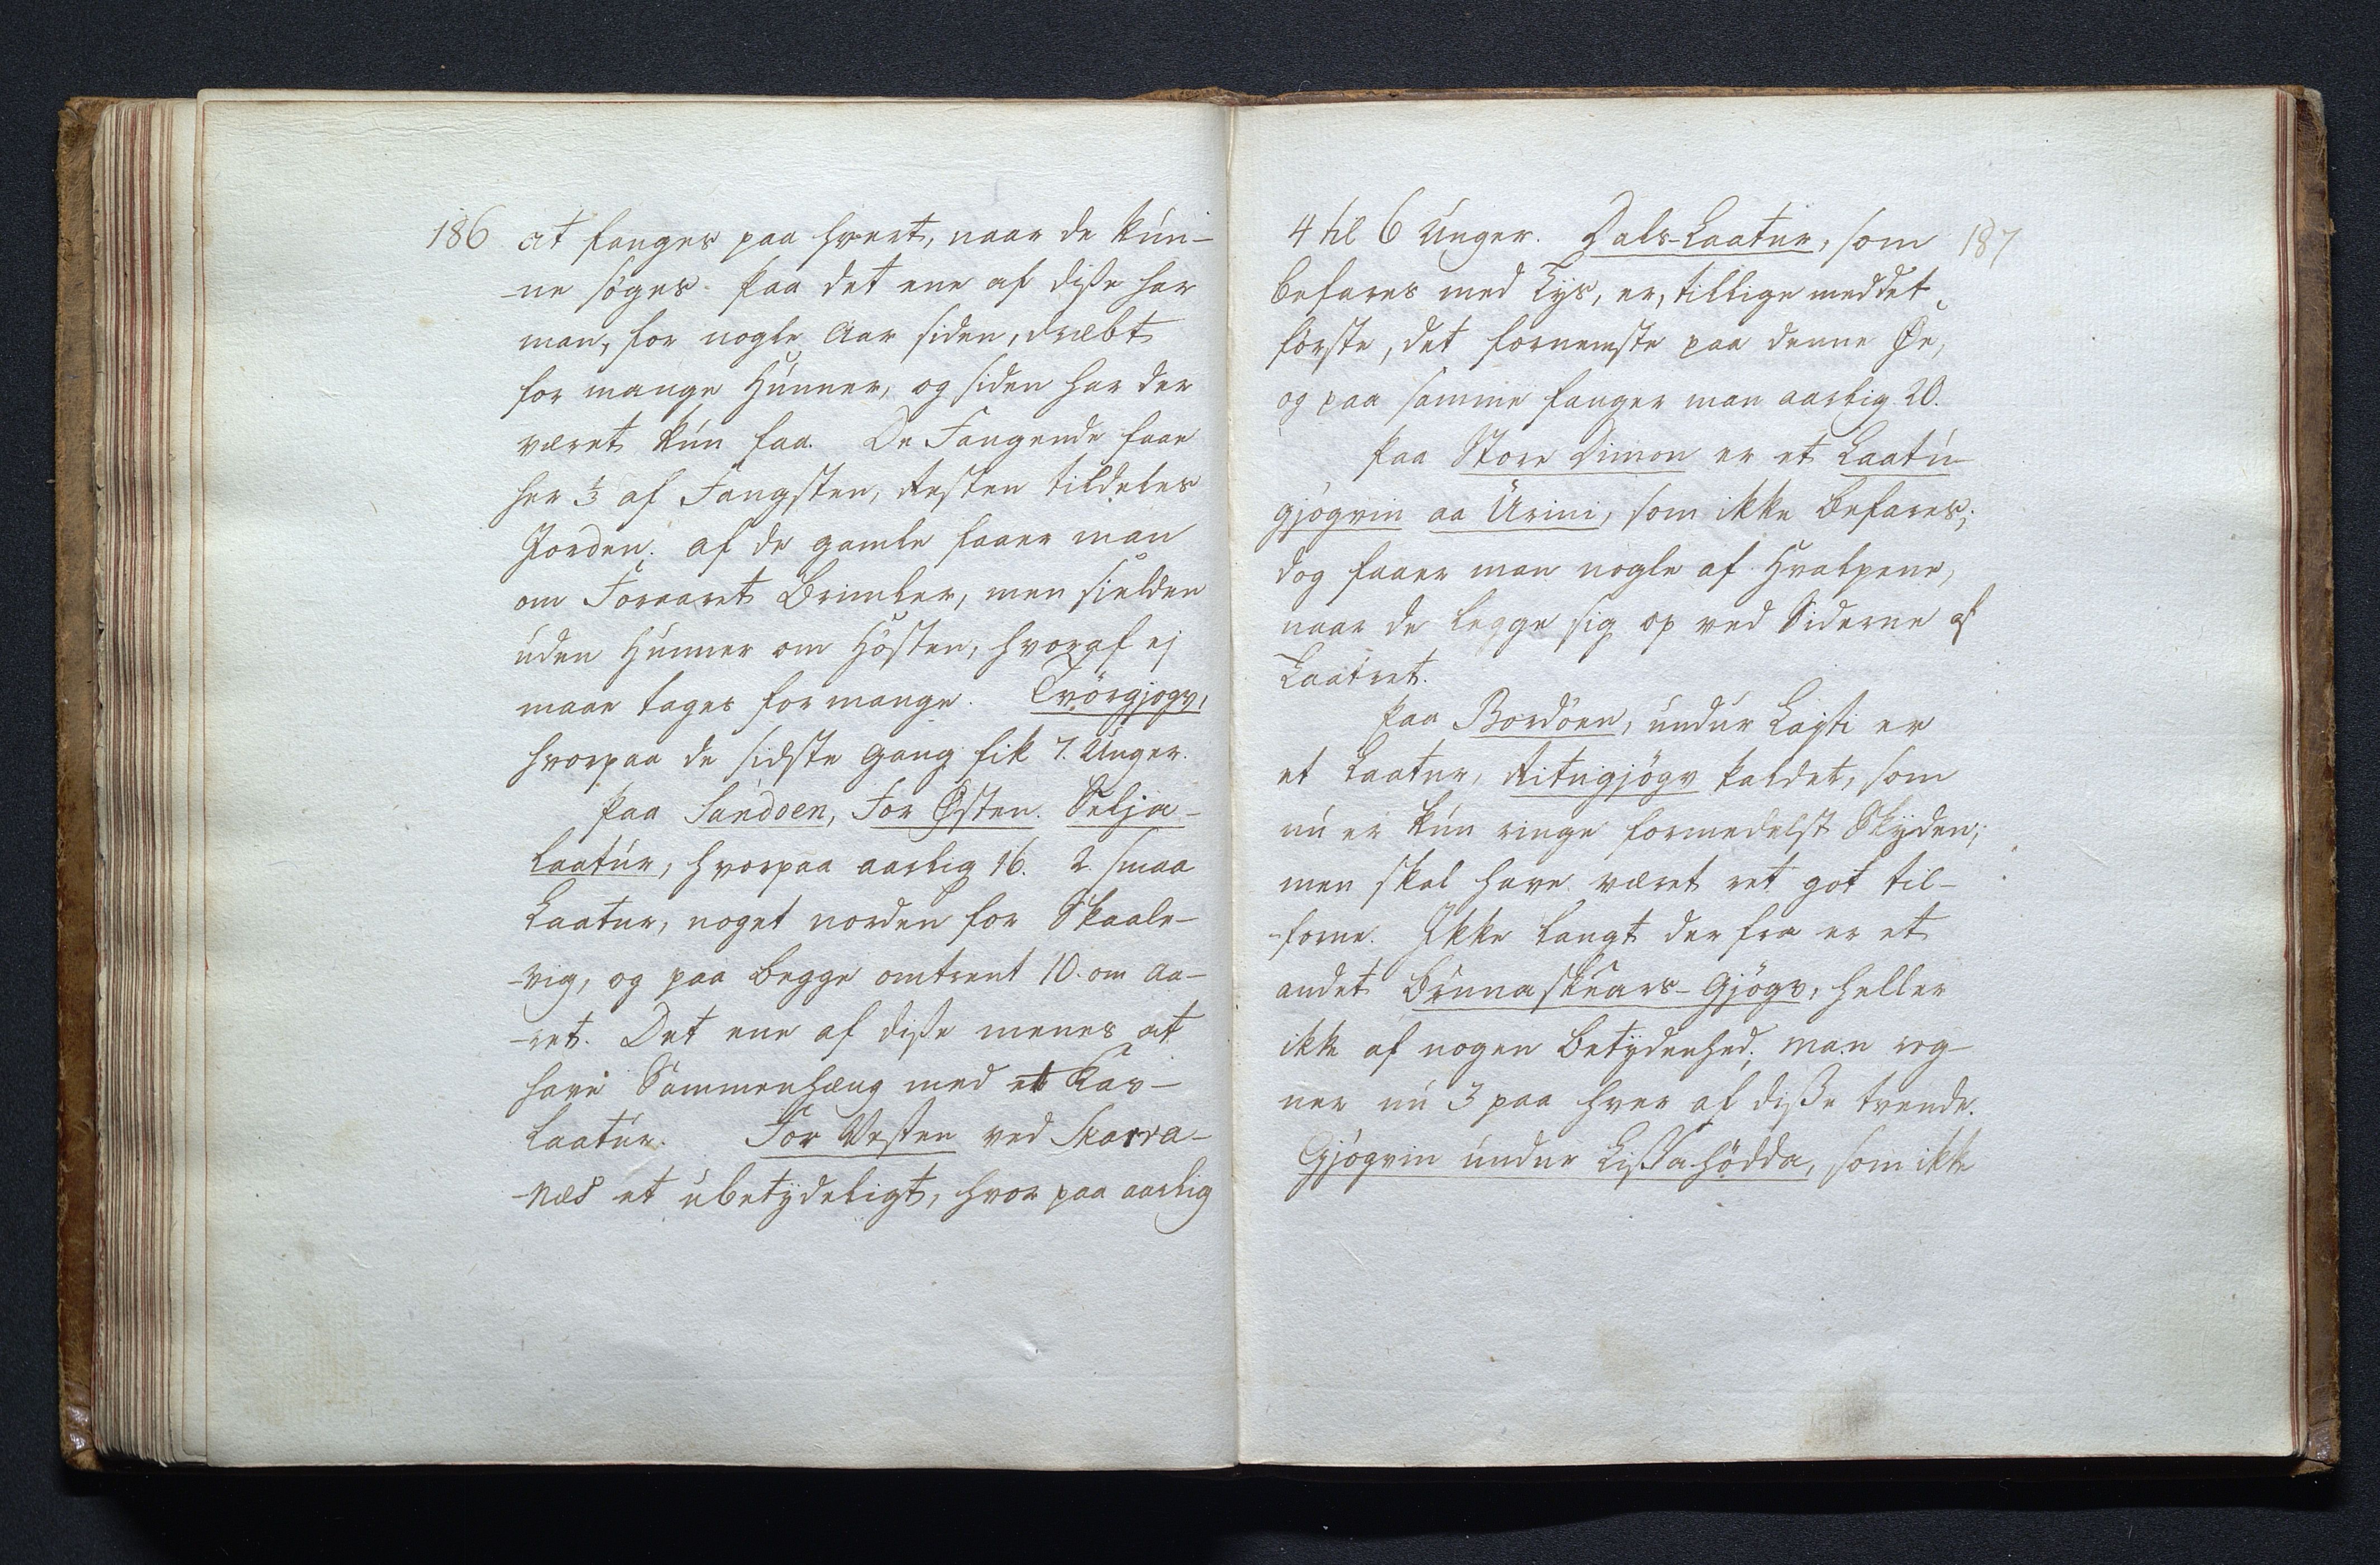 186
at fanges paa hvert, naar de kun-
-ne søges. Paa det ene af disse har
man, for nogle Aar siden, dræbt
for mange Hunner, og siden har der
været kun faa. De Fangende faae
her 1/3 af Fangsten, Resten tildeles
Jorden. Af de gamle faaer man
om Foraaret Brimler, men sielden
uden Hunner om Høsten, hvoraf ej
maae tages for mange. Tvörgjogv,
hvorpaa de sidste Gang fik 7. Unger.
Paa Sandöen, For Østen. Selja-
laatur, hvorpaa aarlig 16. 2. smaa
Laatur, noget norden for Skaale-
-vig, og paa begge omtrent 10. om Aa-
-ret. Det ene af disse menes at
have Sammenhæng med et Kav-
laatur. For Vesten ved Skarva-
-næs et ubetydeligt, hvor paa aarlig
187
4 til 6 Unger. Dals-Laatur, som
befares med Lys, er, tillige med det
første, det fornemste paa denne Øe,
og paa samme fanger man aarlig 20.
Paa Store Dimon er et Laatu-
gjögvin aa Urini, som ikke befares;
dog faaer man nogle af Hvalpene,
naar de legge sig op ved Siderne af
Laatret.
Paa Bordöen, undur Lajti er
et Laatur, Ritugjögv kaldet, som
nu er kun ringe formedelst Skyden;
men skal have været ret got til-
-forne. Ikke langt der fra er et
andet Brunaskears-Gjögv, heller
ikke af nogen Betydenhed; man reg-
ner nu 3 paa hver af disse tvende.
Gjögvin undur Lissahödda, som ikke